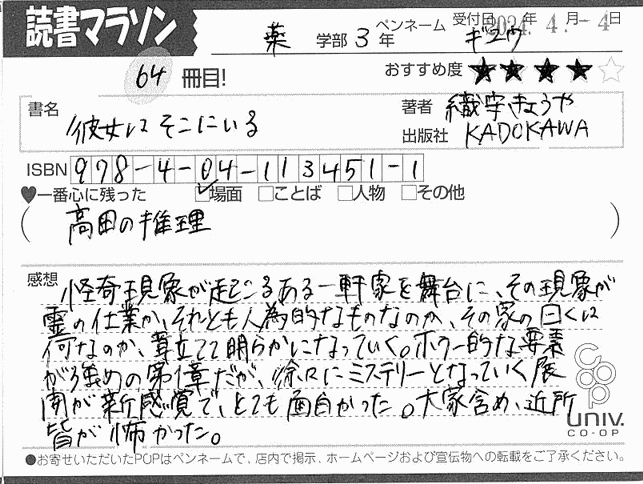 読書マラソン
薬 学部 3 年 ペンネーム ギュウ 受付日 2024年 4月 -4日
64 冊目!
おすすめ度 ★★★★☆
書名 彼女はそこにいる
著者 織守きょうや
出版社 KADOKAWA
ISBN 978-4-04-113451-1
♥一番心に残った ☑場面 □ことば □人物 □その他
(高田の推理)
感想 怪奇現象が起こるある一軒家を舞台に、その現象が
霊の仕業か、それとも人為的なものなのか、その家の曰くは
何なのか、章立てて明らかになっていく。ホラー的な要素
が強めの第1章だが、徐々にミステリーとなっていく展
開が新感覚で、とても面白かった。大家含め、近所
皆が怖かった。
coop
univ.
CO-OP
●お寄せいただいたPOPはペンネームで、店内で掲示、ホームページおよび宣伝物への転載をご了承ください。